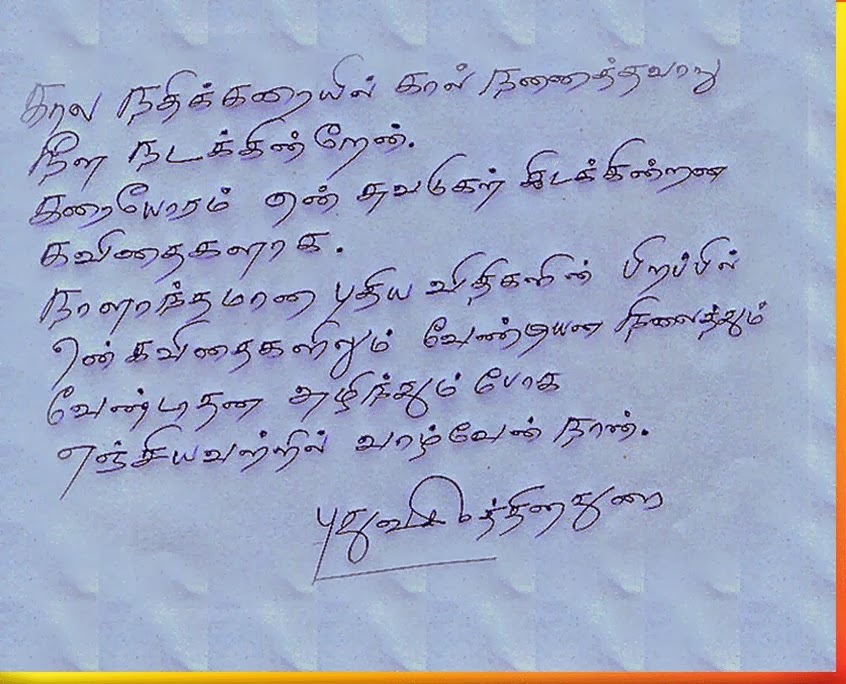 கால நதிக்கரையில் கால் நனைத்தவாறு
நீள நடக்கின்றேன்.
கரையோரம் என் சுவடுகள் கிடக்கின்றன
கவிதைகளாக.
நாளாந்தமான புதிய விதிகளின் பிறப்பில்
என்கவிதைகளிலும் வேண்டியன நிலைத்தும்
வேண்டாதன அழிந்தும் போக
எஞ்சியவற்றில் வாழ்வேன் நான்.
புதுவை இரத்தினதுரை